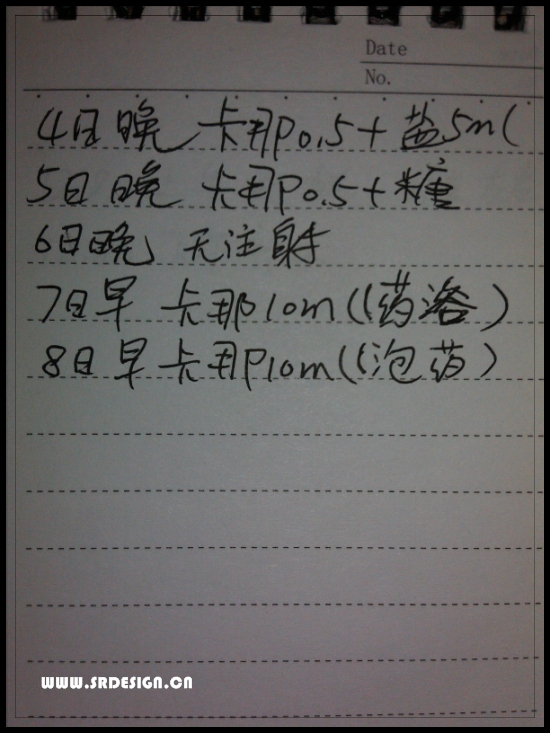 Date
No.
4日晚 卡那0.5+盐5ml
5日晚 卡那0.5+糖
6日晚 无注射
7日早 卡那10ml(药浴)
8日早卡那10ml(泡药)
WWW.SRDESIGN.CN